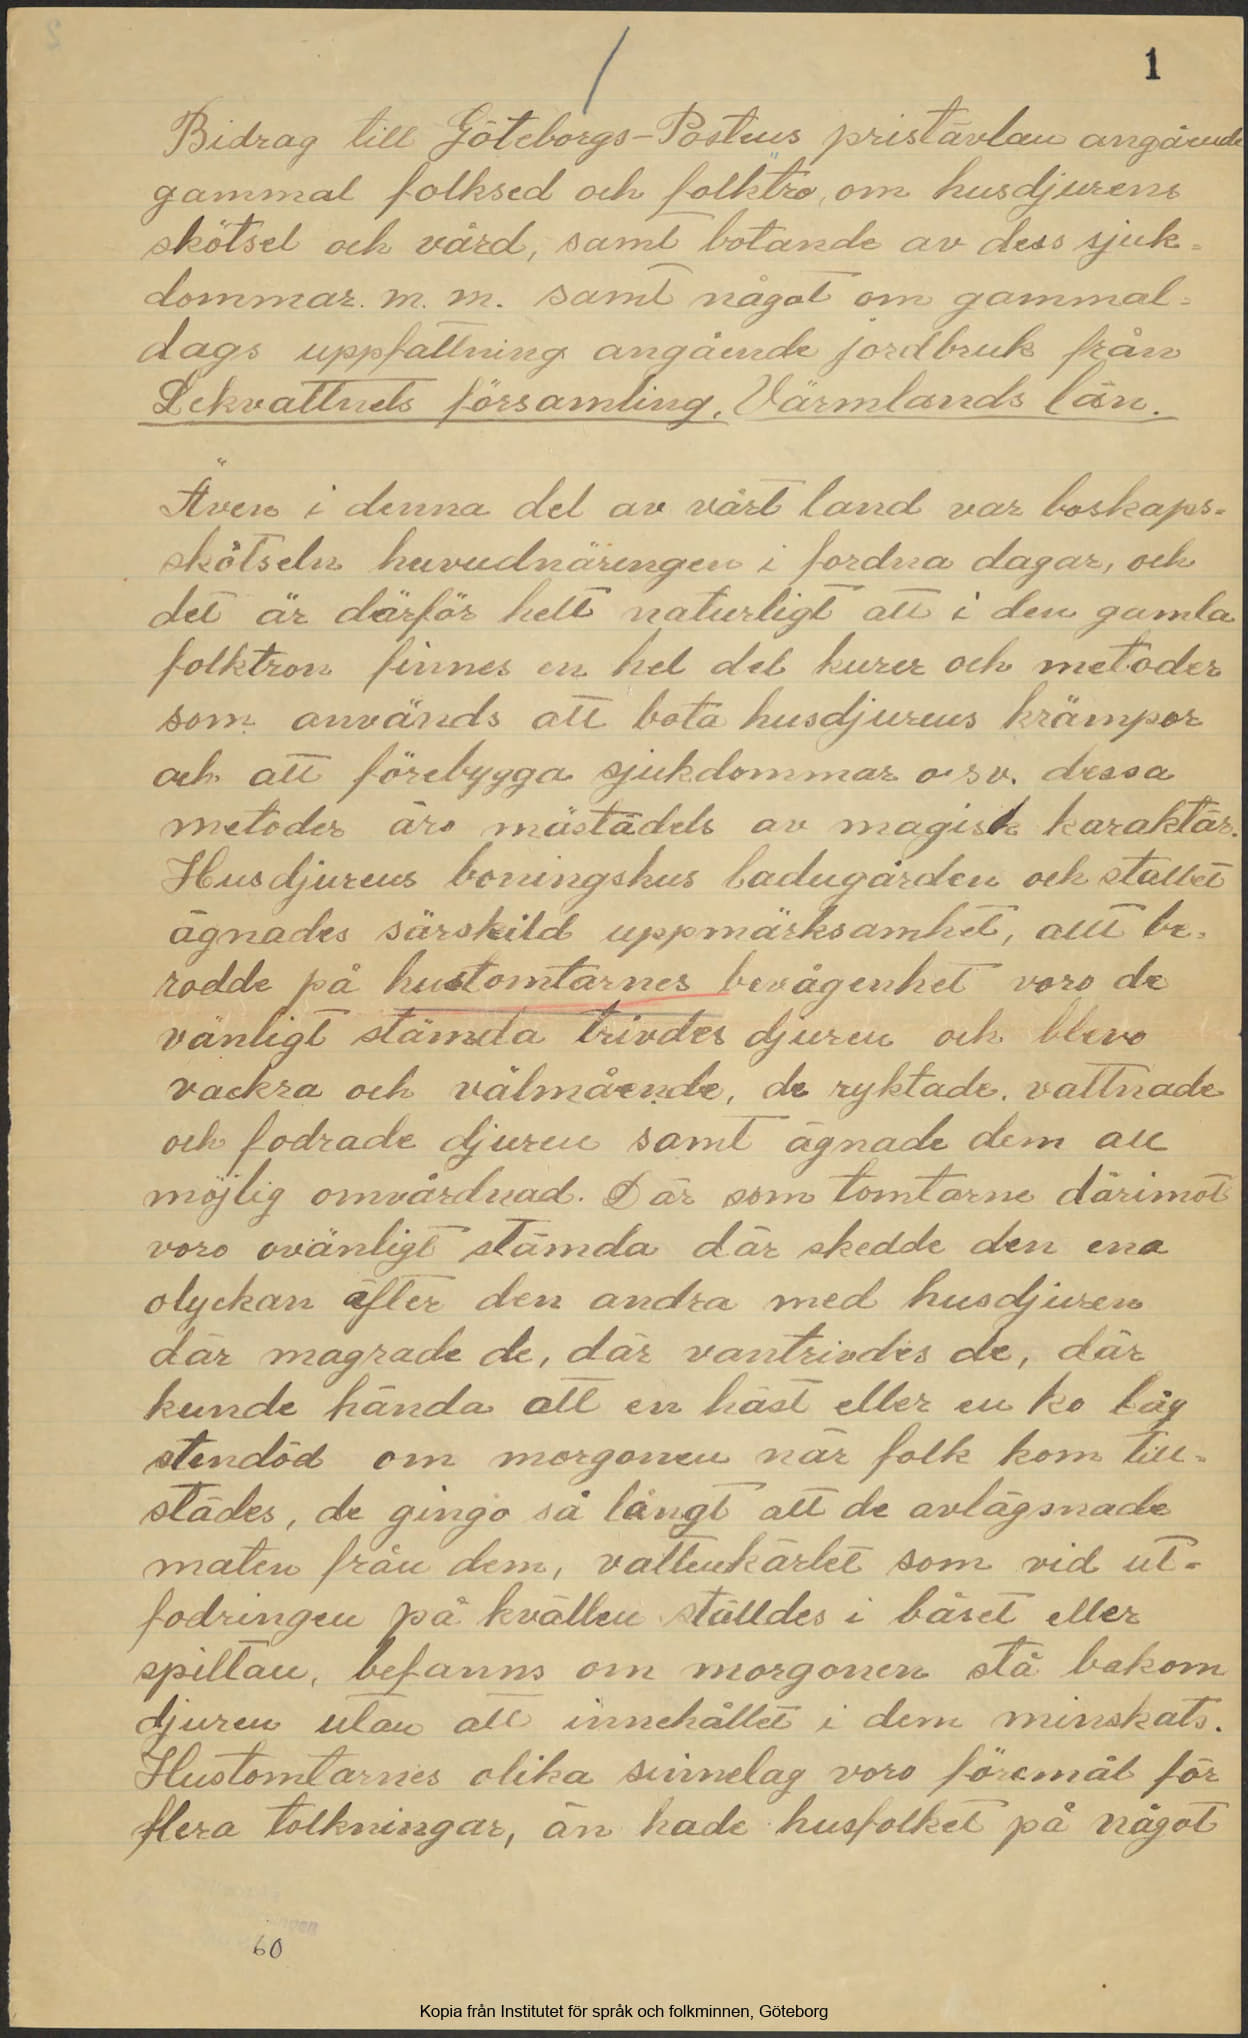 1
Bidrag till Göteborgs-Postens pristävlan angående
gammal folksed och folktro, om husdjurens
skötsel och vård, samt botande av dess sjuk=
dommar. m. m. samt något om gammal=
dags uppfattning angående jordbruk från
Lekvattnets församling, Värmlands län.
Även i denna del av vårt land var boskaps=
skötseln huvudnäringen i fordna dagar, och
det är därför helt naturligt att i den gamla
folktron finnes en hel del kurer och metoder
som används att bota husdjurens krämpor
och att förebygga sjukdommar o.s.v. dessa
metoder äro mästadels av magisk karaktär.
Husdjurens boningshus ladugården och stallet
ägnades särskild uppmärksamhet, allt be=
rodde på hustomtarnes bevågenhet voro de
vänligt stämda trivdes djuren och blevo
vackra och välmående, de ryktade, vattnade
och fodrade djuren samt ägnade dem all
möjlig omvårdnad. Där som tomtarne därimot
voro ovänligt stämda där skedde den ena
olyckan äfter den andra med husdjuren
där magrade de, där vantrivdes de, där
kunde hända att en häst eller en ko låg
stendöd om morgonen när folk kom till=
städes, de gingo så långt att de avlägsnade
maten från dem, vattenkärlet som vid ut=
fodringen på kvällen ställdes i båset eller
spiltan, befanns om morgonen stå bakom
djuren utan att innehållet i dem minskats.
Hustomtarnes olika sinnelag voro föremål för
flera tolkningar, än hade husfolket på något
60
Kopia från Institutet för språk och folkminnen, Göteborg